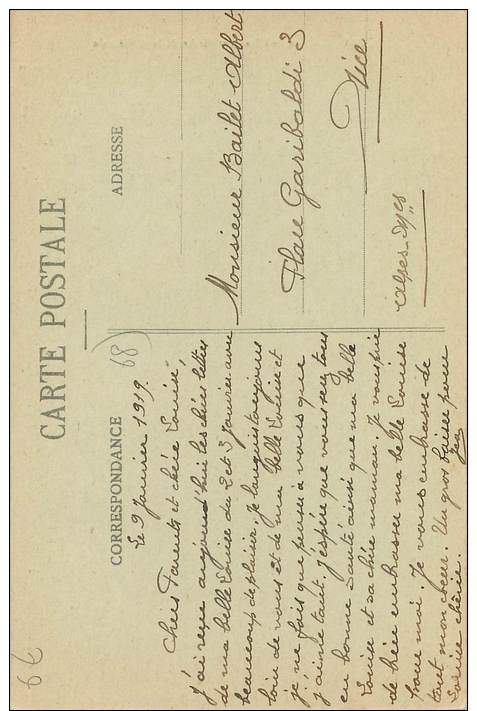 CARTE POSTALE
CORRESPONDANCE
ADRESSE
68
66
Le 9 Janvier 1919.
Chers Parents et chère Louise.
J'ai reçue aujourd'hui les chères lettres
de ma belle Louise du 2 et 3 Janvier avec
beaucoup de plaisir. Je languis toujours
loin de vous et de ma belle Louise et
je ne fais que penser à vous que
j'aime tant. J'éspère que vous seuy tous
en bonne santé ainsi que ma belle
Louise et sa chère maman. Je vous prie
de bien embrasser ma belle Louise
pour moi. Je vous embrasse de
tout mon cœur. Un gros baiser pour
Louise chérie.
Monsieur Bailet Albert
Place Garibaldi 3
Nice
Alpes-Mmes